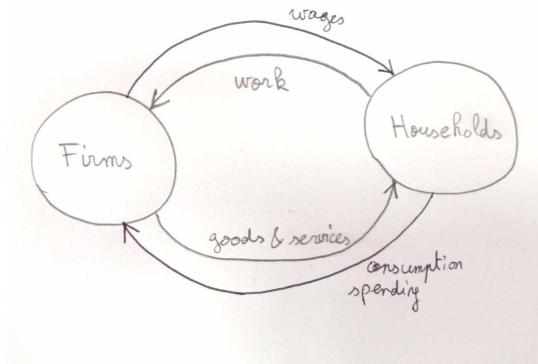 wages
work
Firms
Households
goods & services
consumption
spending